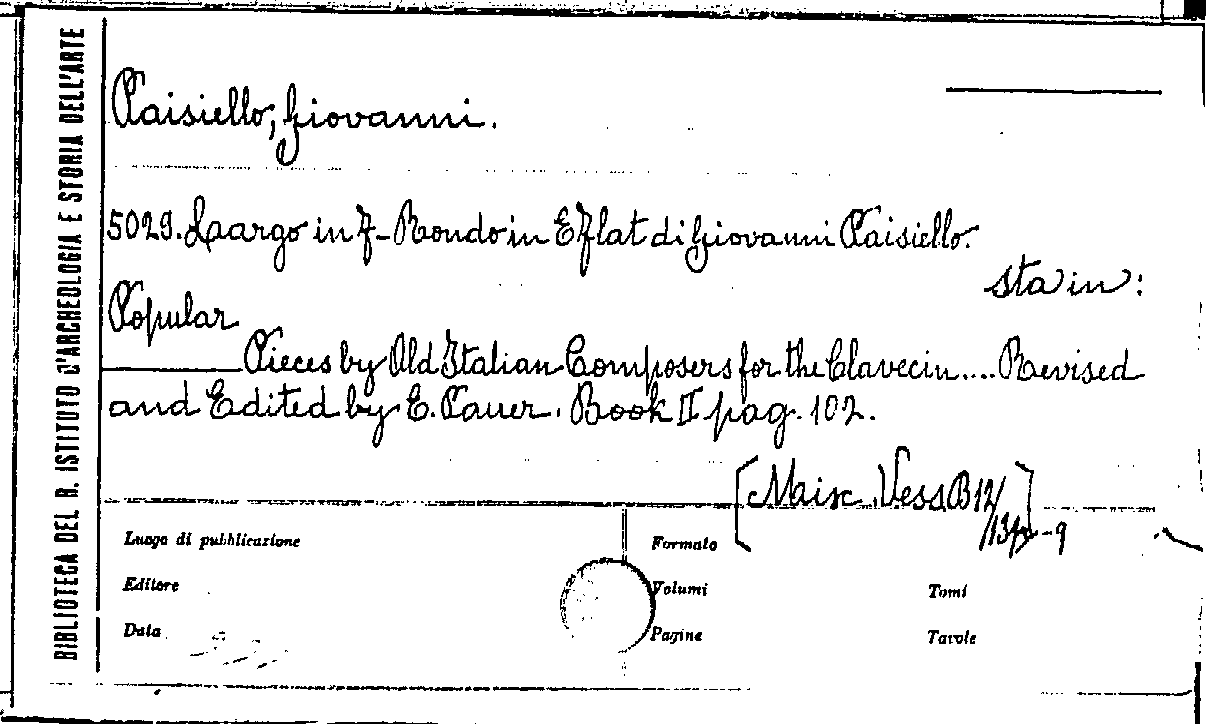 BIBLIOTECA DEL R. ISTITUTO D'ARCHEOLOGIA E STORIA DELL'ARTE
Paisiello, Giovanni.
5029. Laargo in F - Rondo in E flat di Giovanni Paisiello.
sta in:
Popular
Pieces by Old Italian Composers for the Clavecin.... Revised
and Edited by E. Pauer. Book II pag. 102.
Vess B12/
Luogo di pubblicazione
Formato
Editore
Volumi
Tomi
Data
Pagine
Tavole